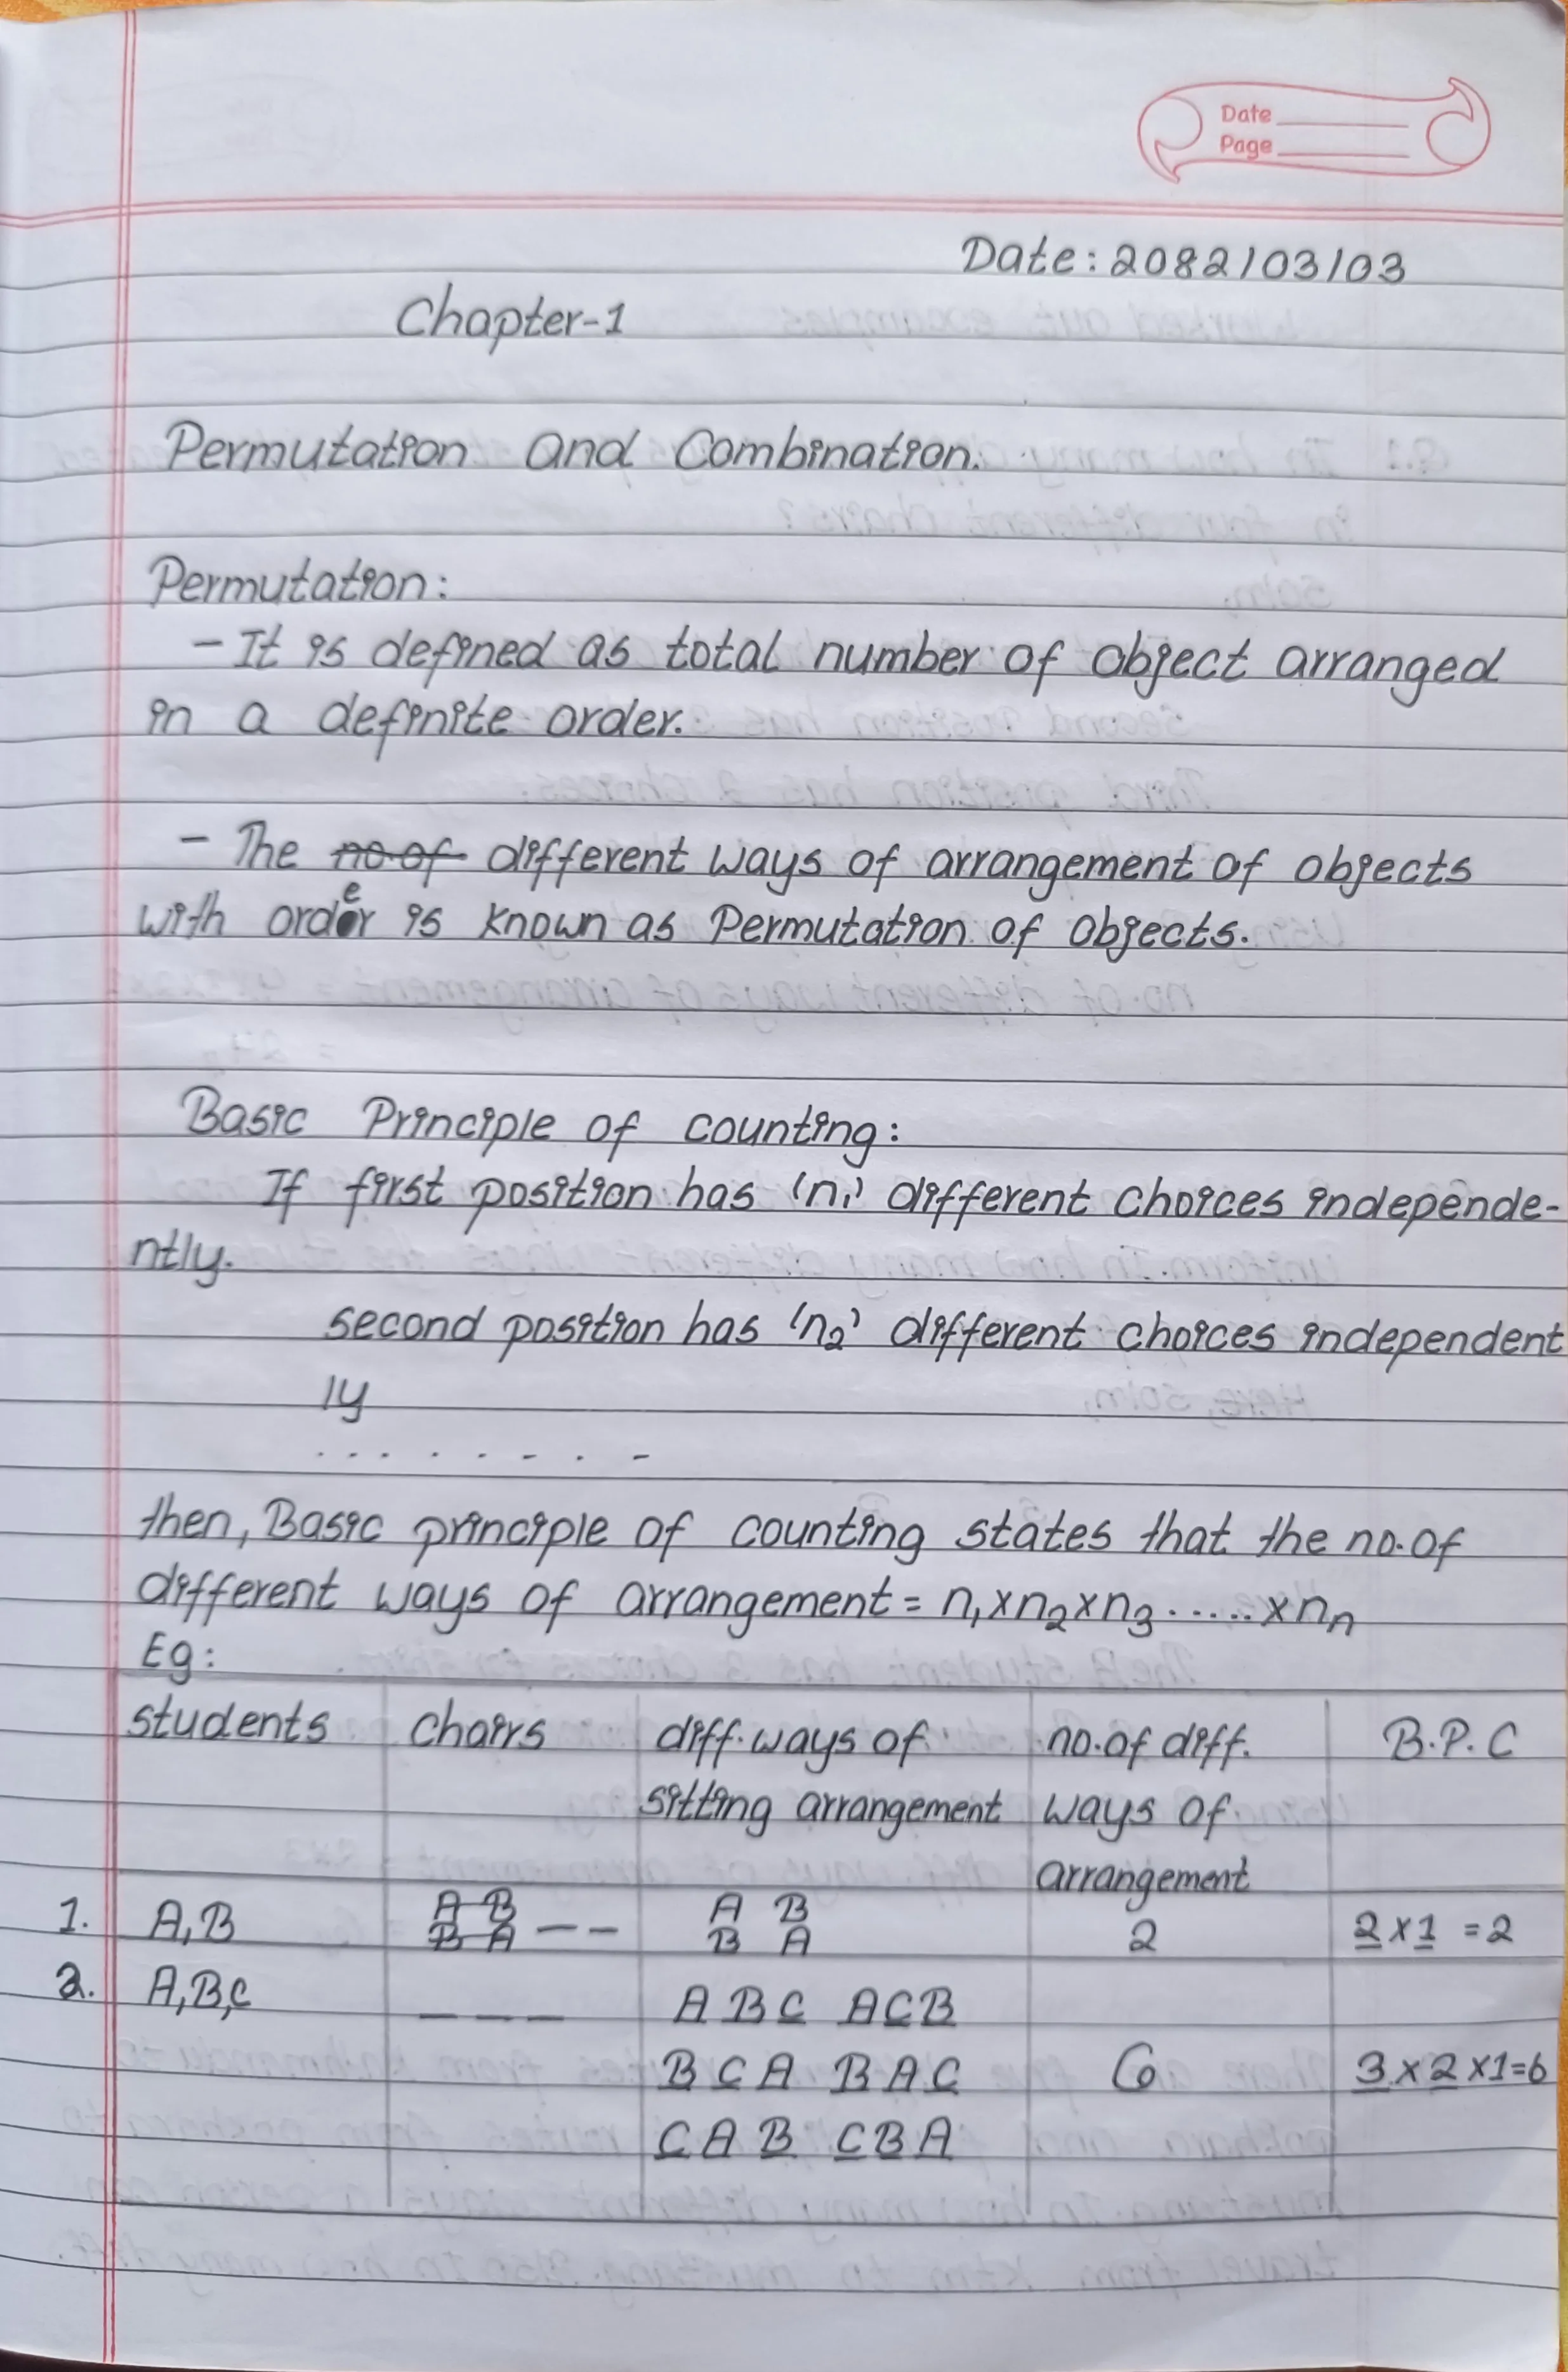 Date
Page
Date: 2082/03/03
Chapter-1
Permutation and Combination.
Permutation:
- It is defined as total number of object arranged
in a definite order.
- The no of different ways of arrangement of objects
with order is known as Permutation of objects.
Basic Principle of counting:
If first position has 'n₁' different choices independe-
ntly.
second position has 'n₂' different choices independent
ly
. . . . . . . -
then, Basic principle of counting states that the no. of
different ways of arrangement = n₁ x n₂ x n₃ ...... x nₙ
Eg:
students chairs diff. ways of no. of diff. B.P.C
sitting arrangement ways of
arrangement
1. A,B A B B A — — A B 2 2 x 1 = 2
B A
2. A,B,C _ _ _ A B C A C B
B C A B A C 6 3 x 2 x 1 = 6
C A B C B A